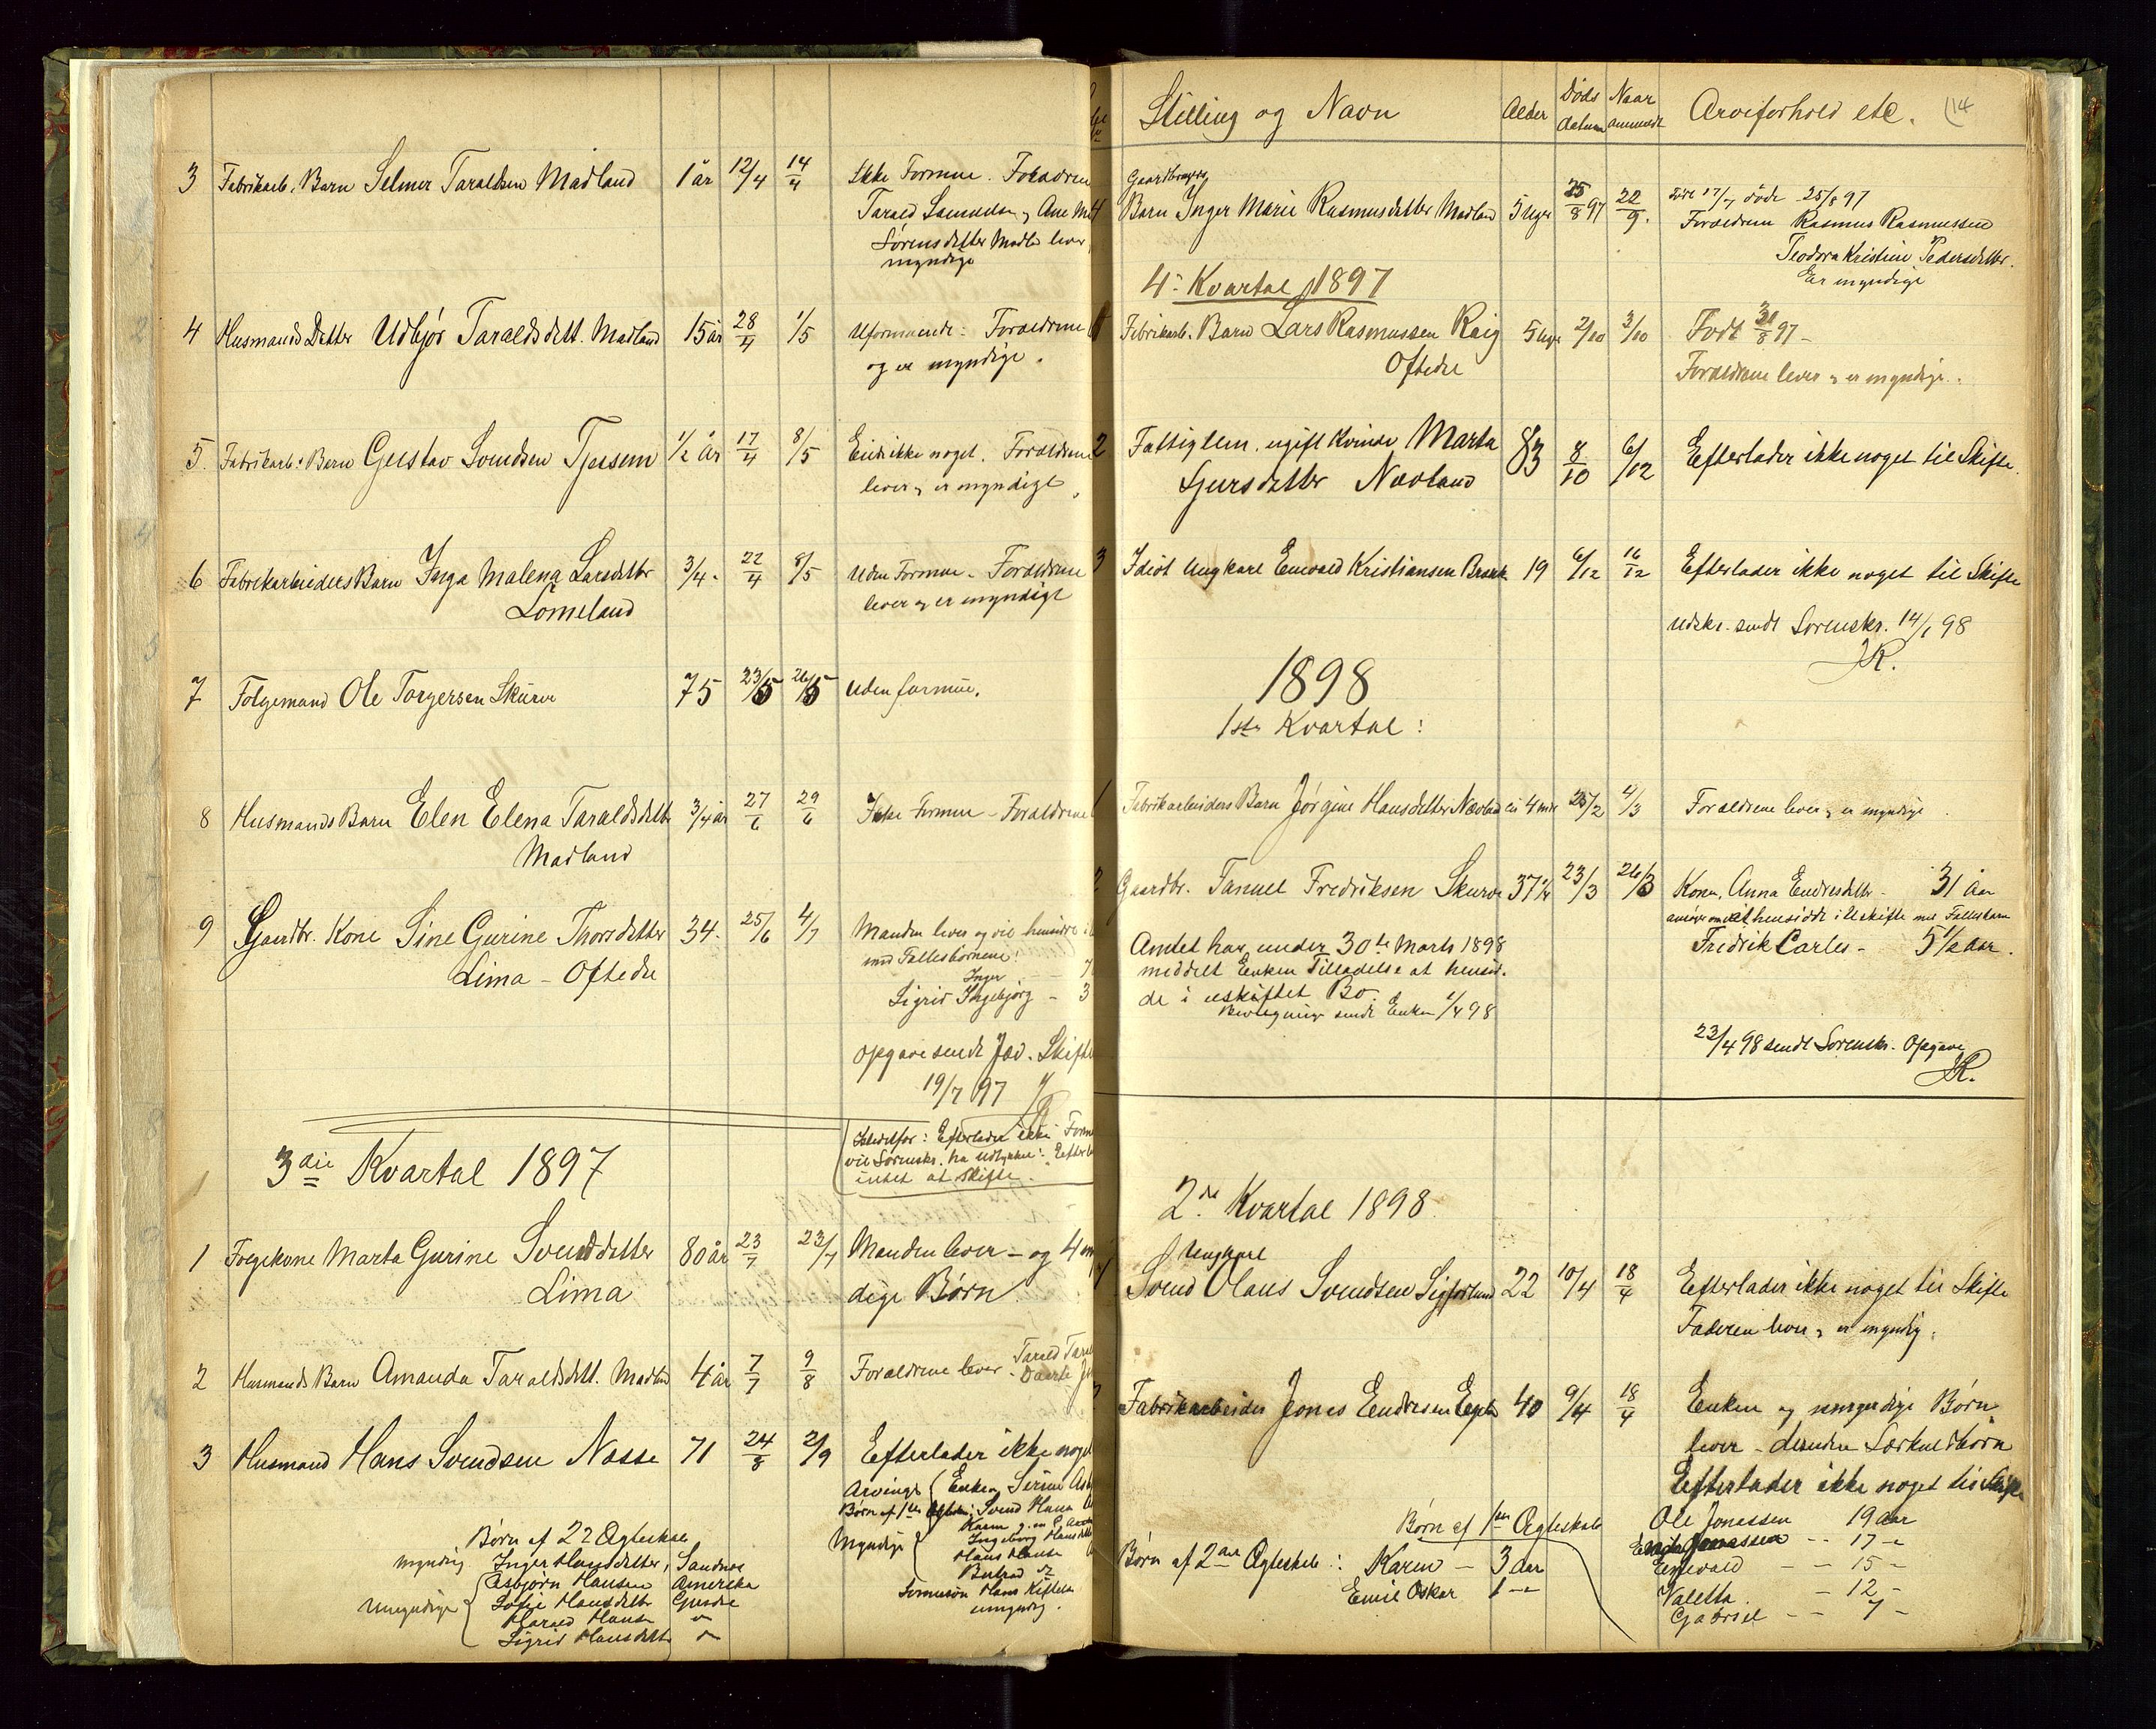 3 Fabrikarb. Barn Selmer Taraldsen Madland 1 år 12/4 14/4 Ikke Formue. Foræeldrene
Tarald Samuelsen og Ane
Sørensdatter Madla lever
myndige
4 Husmands Datter Udbjør Taraldsdatt. Madland 15 år 28/4 1/5 Uformuende: Forældrene
og er myndige.
5. Fabrikarb. Barn Gustav Svendsen Tjessem 1/2 år 17/4 8/5 Eied ikke noget. Forældrene
lever og er myndigt
6 Fabrikarbeiders Barn Inga Malena Larsdatter 3/4. 22/4 8/5 Uden Formue. Forældrene
Lomeland lever og er myndigt
7 Følgemand Ole Torgersen Skurve 75 23/5 26/5 Uden formue.
8 Husmands Barn Elen Elena Taraldsdatt 3/4 år 27/6 29/6 Ikke Formue - Forældrene
Madland
9 Gaardbr. Kone Sine Gurine Thorsdatter 34. 25/6 4/7 Manden lever og vil hensidde i
Lima - Oftedal med Fællesbørnene:
Inger - 7
Sigrid Ingebjørg - 3
Opgave sendt Jæd. Skifte
19/7 97
Istedetfor: Efterlader ikke Form
vil Sorenskr. ha Udtrykket: Efterla
intet at skifte.
3die Kvartal 1897
1 Følgekone Marta Gurine Svendsdatter 80 år 23/7 23/7 Manden lever - og 4 myn
Lima dige Børn
2 Husmands Barn Amanda Taraldsdatt. Madland 4 år 7/7 9/8 Forældrene lever. Tarald Taral
Daarte
3 Husmand Hans Svendsen Næsse 71 24/8 2/9 Efterlader ikke noget
Arvinge Enken Serine
Børn af 1ste Egtesk: Svend Hans
Karen g. m.
Myndige Ingeborg Hansdatt
Hans Hansen
Bertrad
Sønnesøn Hans
umyndig.
Børn af 2det Ægteskab
myndig Inger Hansdatter, Sandnes
Asbjørn Hansen Amerika
Umyndige Sofie Hansdatter Gjesdal
Harald Hansen "
Sigrid Hansdatt "
Stilling og Navn Alder Døds datum Naar anmeldt Arveforhold etc. 114
Gaardbrugers
4 Barn Inger Marie Rasmusdatter Madland 5 uger 25/8 97 22/9. Født 17/7 døde 25/8 97
Forældrene Rasmus Rasmussen
Teodora Kristine Pedersdatter.
Er myndige
4. Kvartal 1897
1 Fabrikarb. Barn Lars Rasmussen Kaig 5 uger 2/10 3/10 Født 31/8 97 -
Oftedal Forældrene lever og er myndige.
2 Fattiglem. ugift Kvinde Marta 83 8/10 6/12 Efterlader ikke noget til Skifte.
Sjursdatter Nævland
3 Idiot Ungkarl Enevald Kristiansen Brække 19 6/12 16/12 Efterlader ikke noget til Skifte
Udskr. sendt Sorenskr. 14/1 98
JR.
1898
1ste Kvartal:
1 Fabrikarbeiders Barn Jørgine Hansdatter Nævland 4 mdr 25/2 4/3 Forældrene lever og er myndige.
2 Gaardbr. Tanuel Fredriksen Skurve 37 1/4 23/3 26/3 Kone, Anna Endresdatter - 31 Aar
at hensidde i Uskifte med Fællesbarn
Fredrik Carles - 5 1/2 aar.
Amtet har under 30te Marts 1898
meddelt Enken Tilladelse at hensid-
de i uskiftet Bo.
Bevilgning sendt Enken 1/4 98
23/4 98 sendt Sorenskr. Opgave
JR.
2det Kvartal 1898
Ungkarl
1 Svend Olaus Svendsen Sigforlund 22 10/4 18/4 Efterlader ikke noget til Skifte
Faderen lever og er myndig.
2 Fabrikarbeider Jonas Endresen 40 9/4 18/4 Enken og umyndige Børn
lever - desuden Særkuldbørn
Efterlader ikke noget til Skifte
Børn af 1ste Ægteskab Ole Jonassen 19 aar
Jonassen - - 17 -
Enevald - - 15 -
Valetta - 12 -
Gabriel - - 7 -
Børn af 2det Ægteskab: Karen - 3 aar
Emil Oskar 1 -